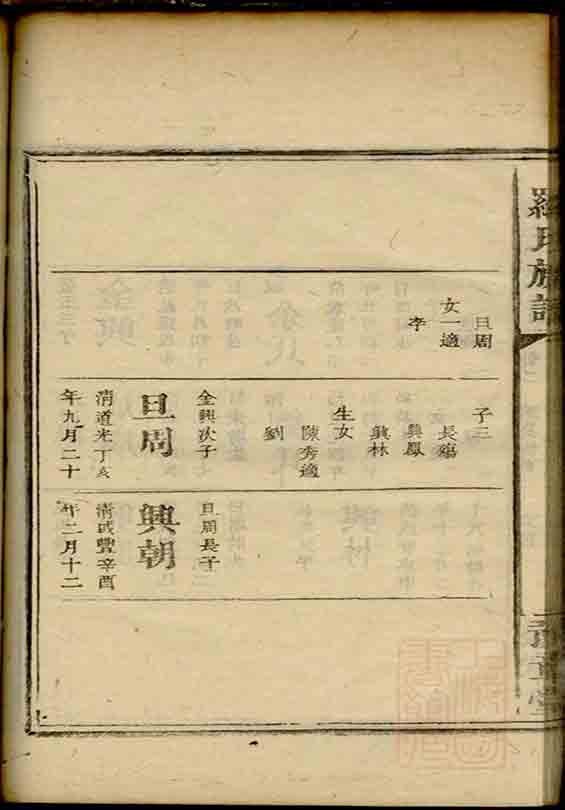 羅氏族譜
旦周
女一適
李
子三
長殤
興鳳
興林
生女
陳秀適
劉
旦周
金興次子
清道光丁亥
年九月二十
興朝
旦周長子
清咸豐辛酉
年二月十二